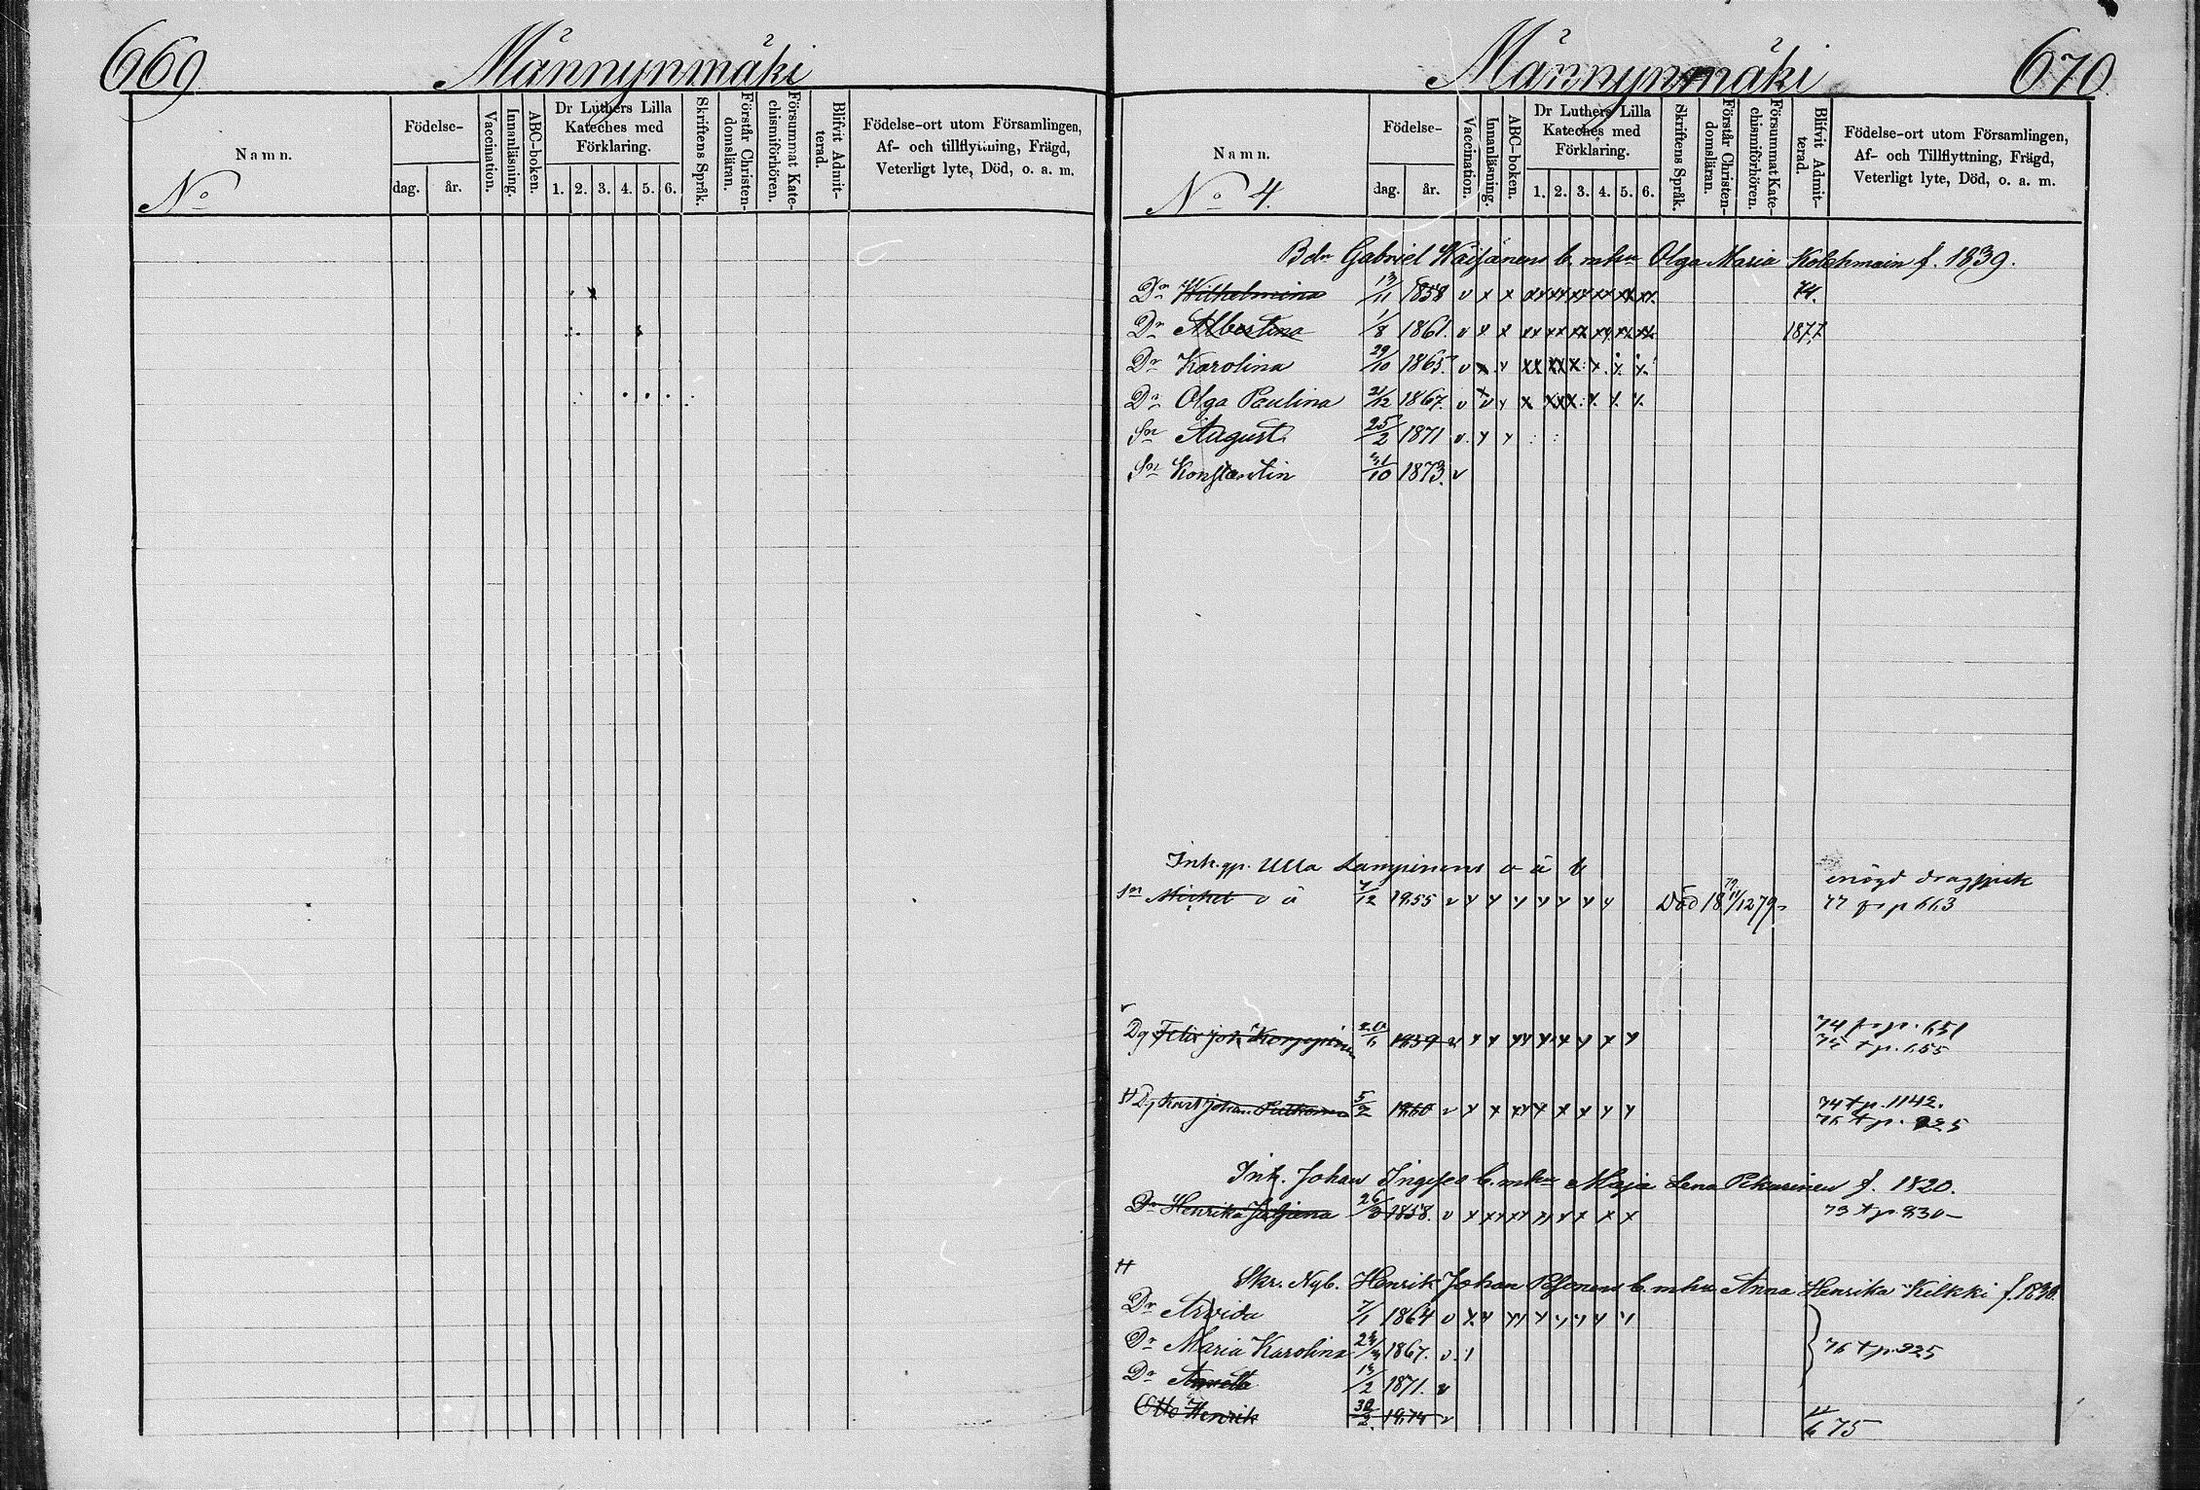 669
Männynmäki
Namn.
No
Födelse-
dag.
år.
Vaccination.
Innanläsning.
ABC-boken.
Dr Luthers Lilla
Kateches med
Förklaring.
1. 2. 3. 4. 5. 6.
Skriftens Språk.
Förstår Christen-
domsläran.
Försummat Kate-
chismiförhören.
Blifvit Admit-
terad.
Födelse-ort utom Församlingen,
Af- och tillflyttning, Frägd,
Veterligt lyte, Död, o. a. m.
Männynmäki
670
Namn.
No 4.
Födelse-
dag.
år.
Vaccination.
Innanläsning.
ABC-boken.
Dr Luthers Lilla
Kateches med
Förklaring.
1. 2. 3. 4. 5. 6.
Skriftens Språk.
Förstår Christen-
domsläran.
Försummat Kate-
chismiförhören.
Blifvit Admit-
terad.
Födelse-ort utom Församlingen,
Af- och Tillflyttning, Frägd,
Veterligt lyte, Död, o. a. m.
Gabriel b. m. hu Olga Maria f. 1839.
Dr Wilhelmina 13/11 1858 v x x xx xx xx xx xx xx 74.
Dr Albertina 1/8 1861. v x x xx xx xx xx xx xx 1877
Dr Karolina 29/10 1865. v x
Dr Olga Paulina 21/12 1867. v
Sn August 25/2 1871 v x x
Sn Konstantin /10 1873. v
Inh. Ulla Lampinens o ä b
Sn Michel o ä /12 1855 v Död 77 fr p 663
Dg Felix Joh. 1859 v 74 fr p. 651
t p. 655
Dg Karl Johan 5/2 1860 v 74 t p. 1142.
76 t p. 225
Inh. Johan b. m. hu Maja Lena Pekarinen f. 1820.
Dr Henrika 26/ 1858. v 73 t p 830
Skr. Nyb. Henrik Johan Pesonens b. m. hu Anna Henrika Kilkki f.
Dr Arvida 7/1 1864 v
Dr Maria Karolina 23/3 1867. v 76 t p. 225
Dr 13/2 1871. v
Otto Henrik 1874 v 75